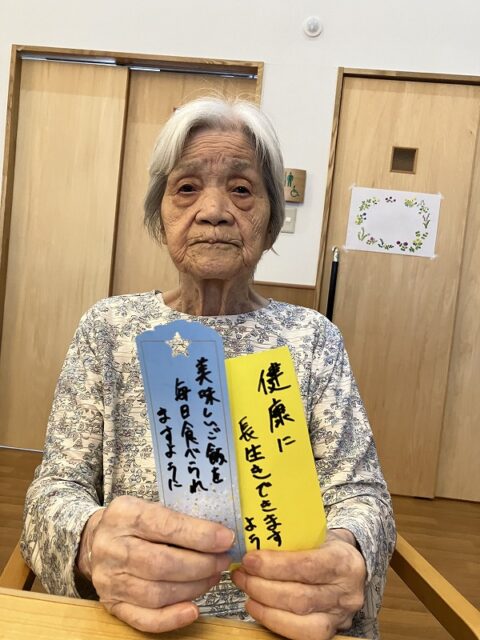 健康に
長生きできます
よう
美味しいご飯を
毎日食べられ
ますように